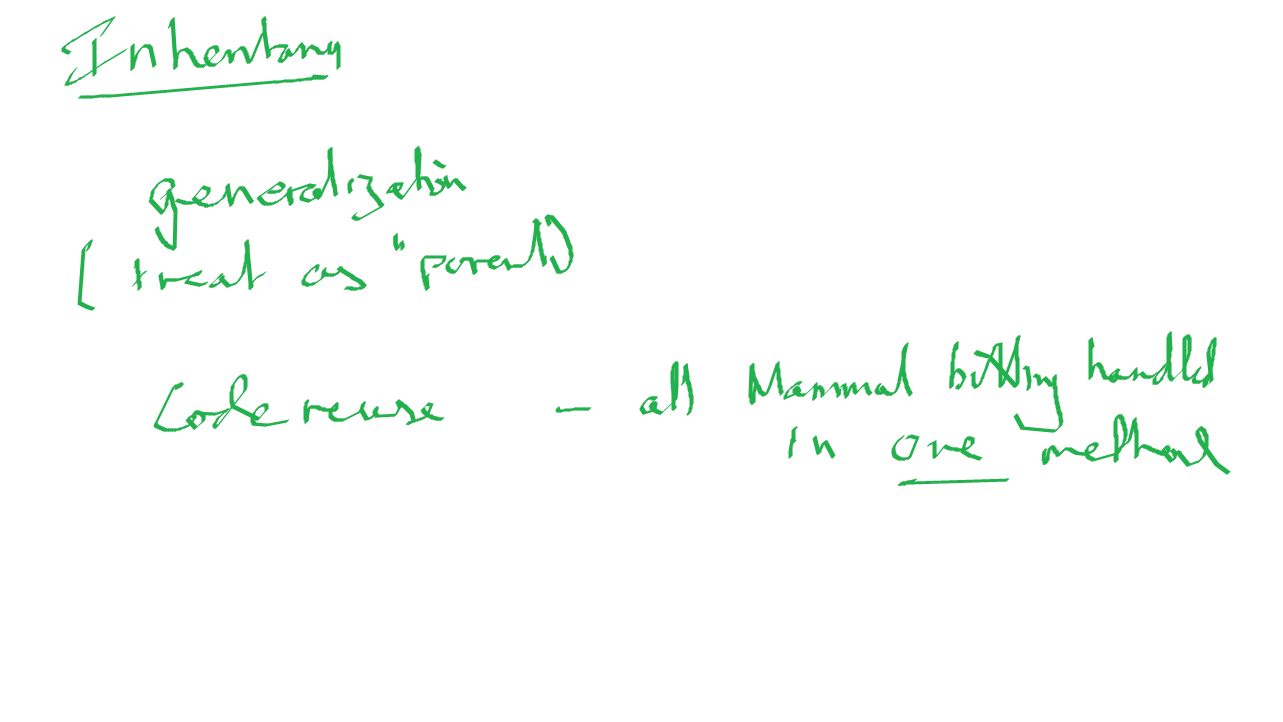 Inheritance
generalization
( treat as "parent")
Code reuse - all Mammal birthing handled
in one method